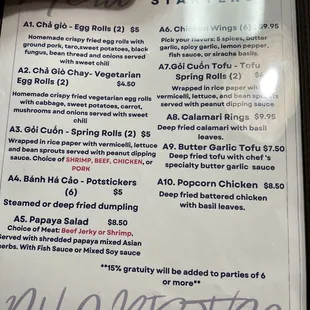 STARTERS
A1. Chả giò - Egg Rolls (2) $5
Homemade crispy fried egg rolls with
ground pork, taro,sweet potatoes, black
fungus, bean, and onions served with
sweet chili
A2. Chả Giò Chay- Vegetarian
Egg Rolls (2) $4.50
Homemade crispy fried vegetarian egg rolls
with cabbage, sweet potatoes, carrot,
mushrooms and onions served with sweet
chili
A3. Gỏi Cuốn - Spring Rolls (2) $5
Wrapped in rice paper with vermicelli, lettuce
and bean sprouts served with peanut dipping
sauce. Choice of SHRIMP, BEEF, CHICKEN, or
PORK
A4. Bánh Há Cảo - Potstickers
(6) $5
Steamed or deep fried dumpling
A5. Papaya Salad $8.50
Choice of Meat: Beef Jerky or Shrimp.
Served with shredded papaya mixed Asian
herbs. With Fish Sauce or Mixed Soy sauce
A6. Chicken Wings (6) $9.95
Pick your flavors: 5 spices, butter
garlic, spicy garlic, lemon pepper,
fish sauce, or siracha basils.
A7.Gỏi Cuốn Tofu - Tofu
Spring Rolls (2)
Wrapped in rice paper with
vermicelli, lettuce, and bean sprouts
served with peanut dipping sauce
A8. Calamari Rings $9.95
Deep fried calamari with basil
leaves.
A9. Butter Garlic Tofu $7.50
Deep fried tofu with chef 's
specialty butter garlic sauce
A10. Popcorn Chicken $8.50
Deep fried battered chicken
with basil leaves.
**15% gratuity will be added to parties of 6
or more**